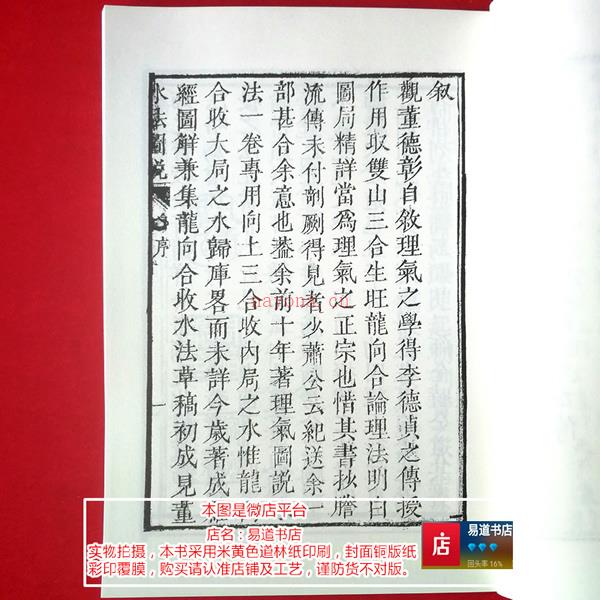 叙
觀董德彰自敘理氣之學得李德貞之傳授
作用取雙山三合生旺龍向合論理法明白
圖局精詳當爲理氣之正宗也惜其書抄謄
流傳未付剞劂得見者少蕭公云紀送余一
部甚合余意也蓋余前十年著理氣圖說
法一卷專用向上三合收內局之水惟龍向
合收大局之水歸庫畧而未詳今歲著成
經圖解兼集龍向合收水法草稿初成見董
水法圖說
序
一
nayona.cn
本图是微店平台
店名:易道书店
实物拍摄,本书采用米黄色道林纸印刷,封面铜版纸
彩印覆膜,购买请认准店铺及工艺,谨防货不对版。
店
易道书店
回头率 16%